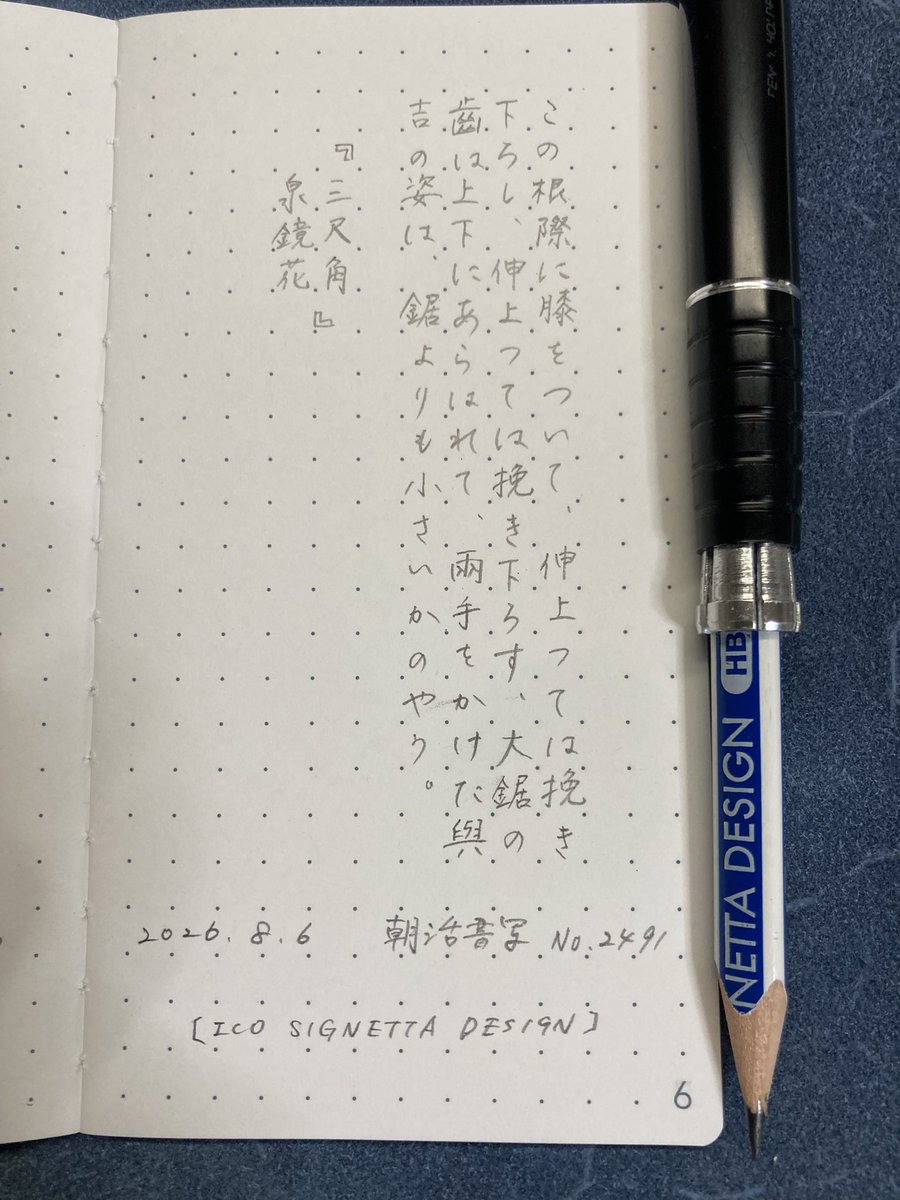 この根際に膝をついて、伸上つては挽き
下ろし、伸上つては挽き下ろす、大鋸の
齒は上下にあらはれて、兩手をかけた與
吉の姿は、鋸よりも小さいかのやう。
『三尺角』
泉鏡花
2026.8.6 朝活書写 No.2491
[ICO SIGNETTA DESIGN]
6
NETTA DESIGN HB